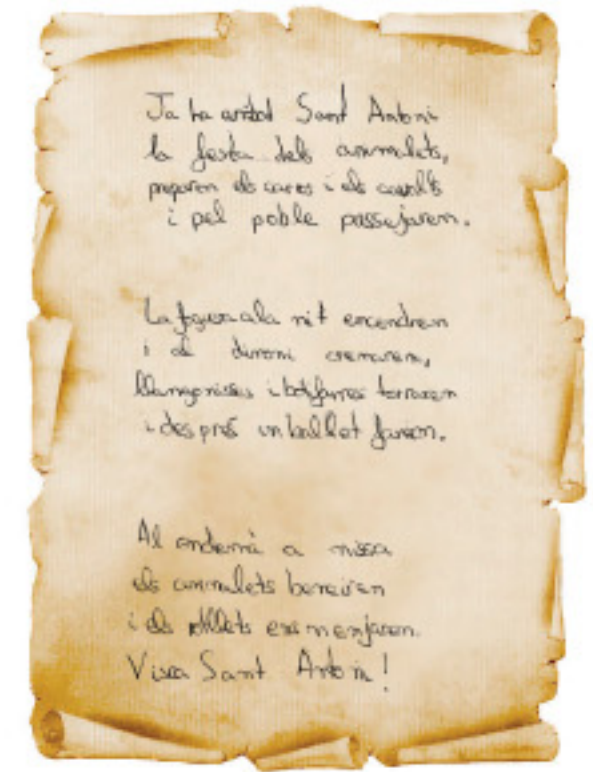 Ja ha arribat Sant Antoni
la festa dels animalets,
preparen els carros i els cavalls
i pel poble passejarem.
La foguera a la nit encendrem
i al dimoni cremarem,
llangonisses i botifarres torrarem
i després un ballet farem.
Al endemà a missa
els animalets beneiren
i els rotllets ens menjarem.
Visca Sant Antoni!